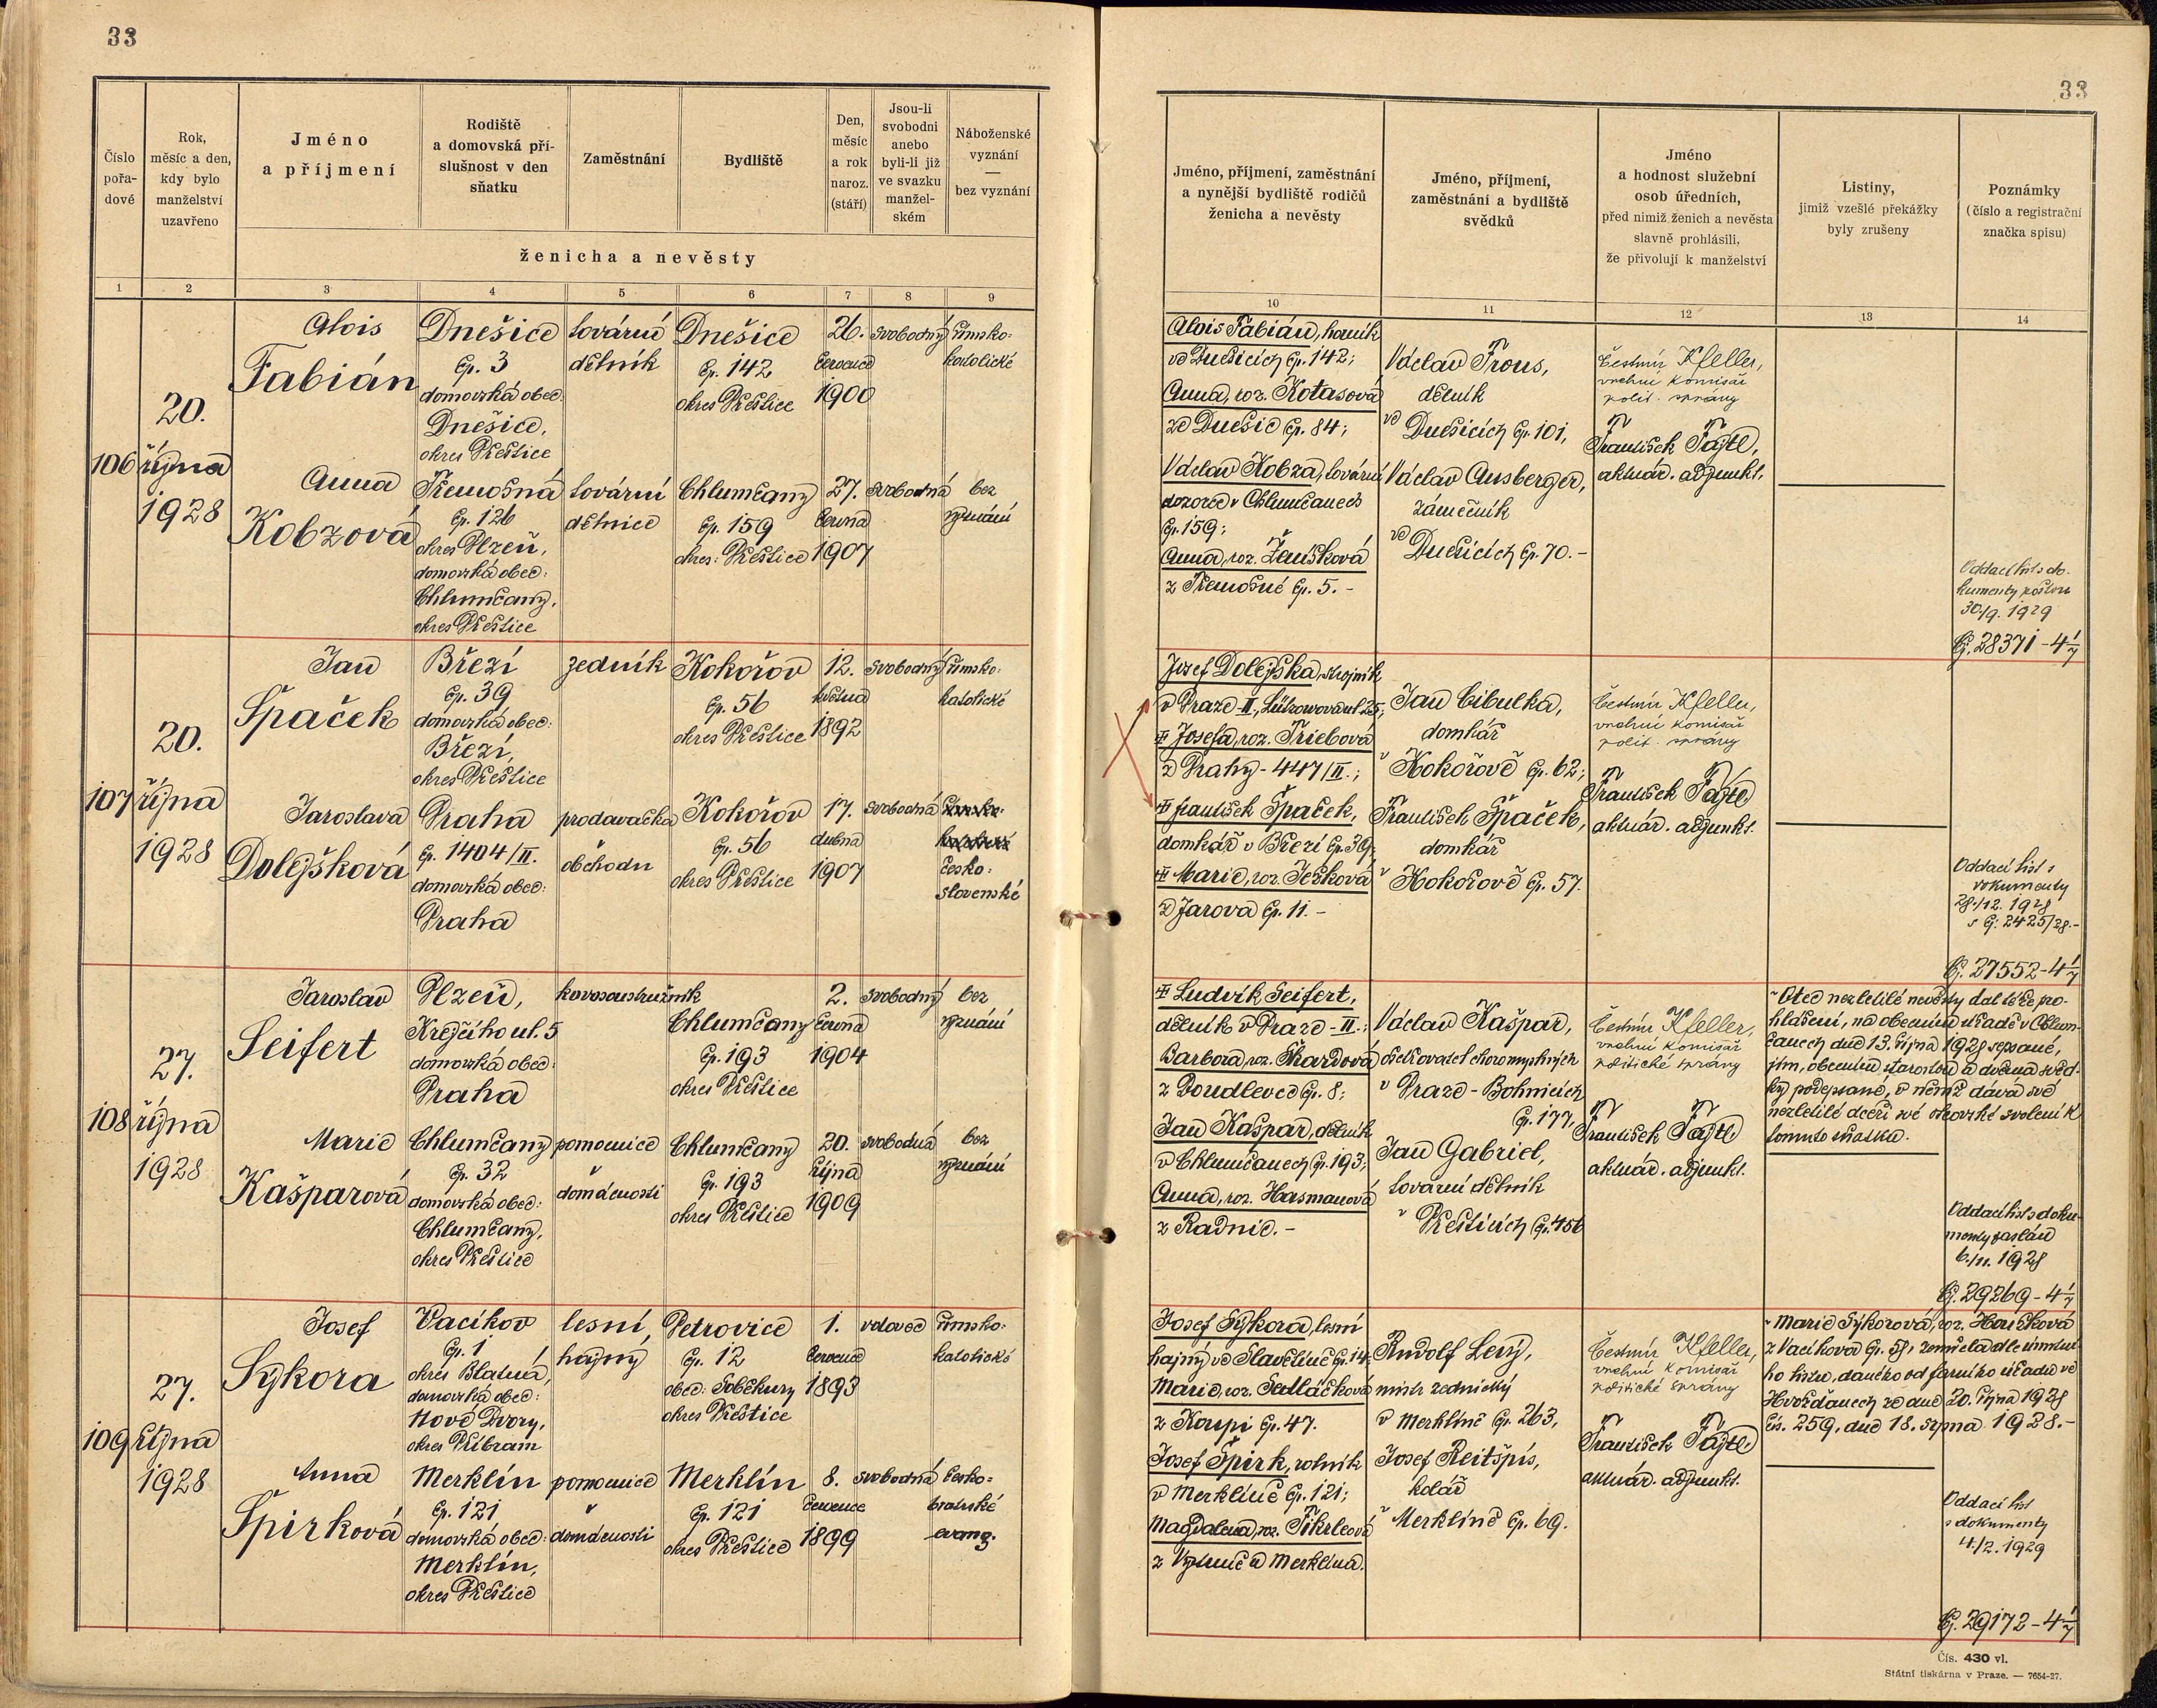 33
Číslo
pořa-
dové
Rok,
měsíc a den,
kdy bylo
manželství
uzavřeno
Jméno
a příjmení
Rodiště
a domovská pří-
slušnost v den
sňatku
Zaměstnání
Bydliště
Den,
měsíc
a rok
naroz.
(stáří)
Jsou-li
svobodni
anebo
byli-li již
ve svazku
manžel-
ském
Náboženské
vyznání
—
bez vyznání
ženicha a nevěsty
1 2 3 4 5 6 7 8 9
106
20.
října
1928
Alois
Fabián
Dnešice
čp. 3
domovská obec:
Dnešice,
okres Přeštice
tovární
dělník
Dnešice
čp. 142
okres Přeštice
26.
července
1900
svobodný
římsko-
katolické
Anna
Kobzová
Třemošná
čp. 126
okres Plzeň,
domovská obec:
Chlumčany,
okres Přeštice
tovární
dělnice
Chlumčany
čp. 159
okres: Přeštice
27.
června
1907
svobodná
bez
vyznání
107
20.
října
1928
Jan
Špaček
Březí
čp. 39
domovská obec:
Březí,
okres Přeštice
zedník
Kokořov
čp. 56
okres Přeštice
12.
května
1892
svobodný
římsko-
katolické
Jaroslava
Dolejšková
Praha
čp. 1404/II.
domovská obec:
Praha
prodavačka
obchodu
Kokořov
čp. 56
okres Přeštice
17.
dubna
1907
svobodná
česko-
slovenské
108
27.
října
1928
Jaroslav
Seifert
Plzeň,
Krejčího ul. 5
domovská obec:
Praha
kovosoustružník
Chlumčany
čp. 193
okres Přeštice
2.
června
1904
svobodný
bez
vyznání
Marie
Kašparová
Chlumčany
čp. 32
domovská obec:
Chlumčany,
okres Přeštice
pomocnice
v
domácnosti
Chlumčany
čp. 193
okres Přeštice
20.
října
1909
svobodná
bez
vyznání
109
27.
října
1928
Josef
Sýkora
Vacíkov
čp. 1
okres Blatná,
domovská obec:
Nové Dvory,
okres Příbram
lesní
hajný
Petrovice
čp. 12
obec: Soběkury
okres Přeštice
1.
července
1893
vdovec
římsko-
katolické
Anna
Špirková
Merklín
čp. 121
domovská obec:
Merklín,
okres Přeštice
pomocnice
v
domácnosti
Merklín
čp. 121
okres Přeštice
8.
července
1899
svobodná
česko-
bratrské
evang.
33
Jméno, příjmení, zaměstnání
a nynější bydliště rodičů
ženicha a nevěsty
Jméno, příjmení,
zaměstnání a bydliště
svědků
Jméno
a hodnost služební
osob úředních,
před nimiž ženich a nevěsta
slavně prohlásili,
že přivolují k manželství
Listiny,
jimiž vzešlé překážky
byly zrušeny
Poznámky
(číslo a registrační
značka spisu)
10 11 12 13 14
Alois Fabián, horník
ve Dnešicích čp. 142;
Anna, roz. Kotasová
ze Dnešic čp. 84;
Václav Kobza, tovární
dozorce v Chlumčanech
čp. 159;
Anna, roz. Ženíšková
z Třemošné čp. 5. -
Václav Trous,
dělník
ve Dnešicích čp. 101,
Václav Ausberger,
zámečník
ve Dnešicích čp. 70. -
Čestmír Kfeller,
vrchní komisař
polit. správy
František Tajtl,
aktuár. adjunkt.
Oddací list s do-
kumenty poslán
30./9. 1929
Čj. 28371-4 1/7
Josef Dolejška, strojník
v Praze-II., Lützowova ul. 25;
Josefa, roz. Trieb​ová
z Prahy - 447/II.;
František Špaček,
domkář v Březí čp. 39;
Marie, roz. Ježková
z Jarova čp. 11. -
Jan Cibulka,
domkář
v Kokořově čp. 62;
František Špaček,
domkář
v Kokořově čp. 57.
Čestmír Kfeller,
vrchní komisař
polit. správy
František Tajtl
aktuár. adjunkt.
Oddací list s
dokumenty
28./12. 1928
s čj. 2425/28.-
Čj. 27552-4 1/7
Ludvík Seifert,
dělník v Praze-II.;
Barbora, roz. Škardová
z Doudlevec čp. 8;
Jan Kašpar, dělník
v Chlumčanech čp. 193;
Anna, roz. Hasmanová
z Radnic. -
Václav Kašpar,
ošetřovatel choromyslných
v Praze-Bohnicích
čp. 177,
Jan Gabriel,
tovární dělník
v Přešticích čp. 456
Čestmír Kfeller,
vrchní komisař
politické správy
František Tajtl
aktuár. adjunkt.
Otec nezletilé nevěsty dal též pro-
hlášení, na obecním úřadě v Chlum-
čanech dne 13. října 1928 sepsané,
jím, obecním starostou a dvěma svěd-
ky podepsané, v němž dává své
nezletilé dceři své otcovské svolení k
tomuto sňatku.
Oddací list s doku-
menty zaslán
6./11. 1928
Čj. 29269-4 1/7
Josef Sýkora, lesní
hajný ve Slavětíně čp. 14;
Marie, roz. Sedláčková
z Koupi čp. 47.
Josef Špirk, rolník
v Merklíně čp. 121;
Magdalena, roz. Tikrleová
z Merklína.
Rudolf Levý,
mistr zednický
v Merklíně čp. 263,
Josef Reitšpís,
kolář
v Merklíně čp. 69.
Čestmír Kfeller,
vrchní komisař
politické správy
František Tajtl
aktuár. adjunkt.
Marie Sýkorová, roz. Hořišková
z Vacíkova čp. 58, zemřela dle úmrtní-
ho listu, daného od farního úřadu ve
Hvožďanech ze dne 20. října 1928
čís. 259, dne 18. srpna 1928. -
Oddací list
s dokumenty
4./2. 1929
Čj. 29172-4 1/7
Čís. 430 vl.
Státní tiskárna v Praze. — 7654-27.